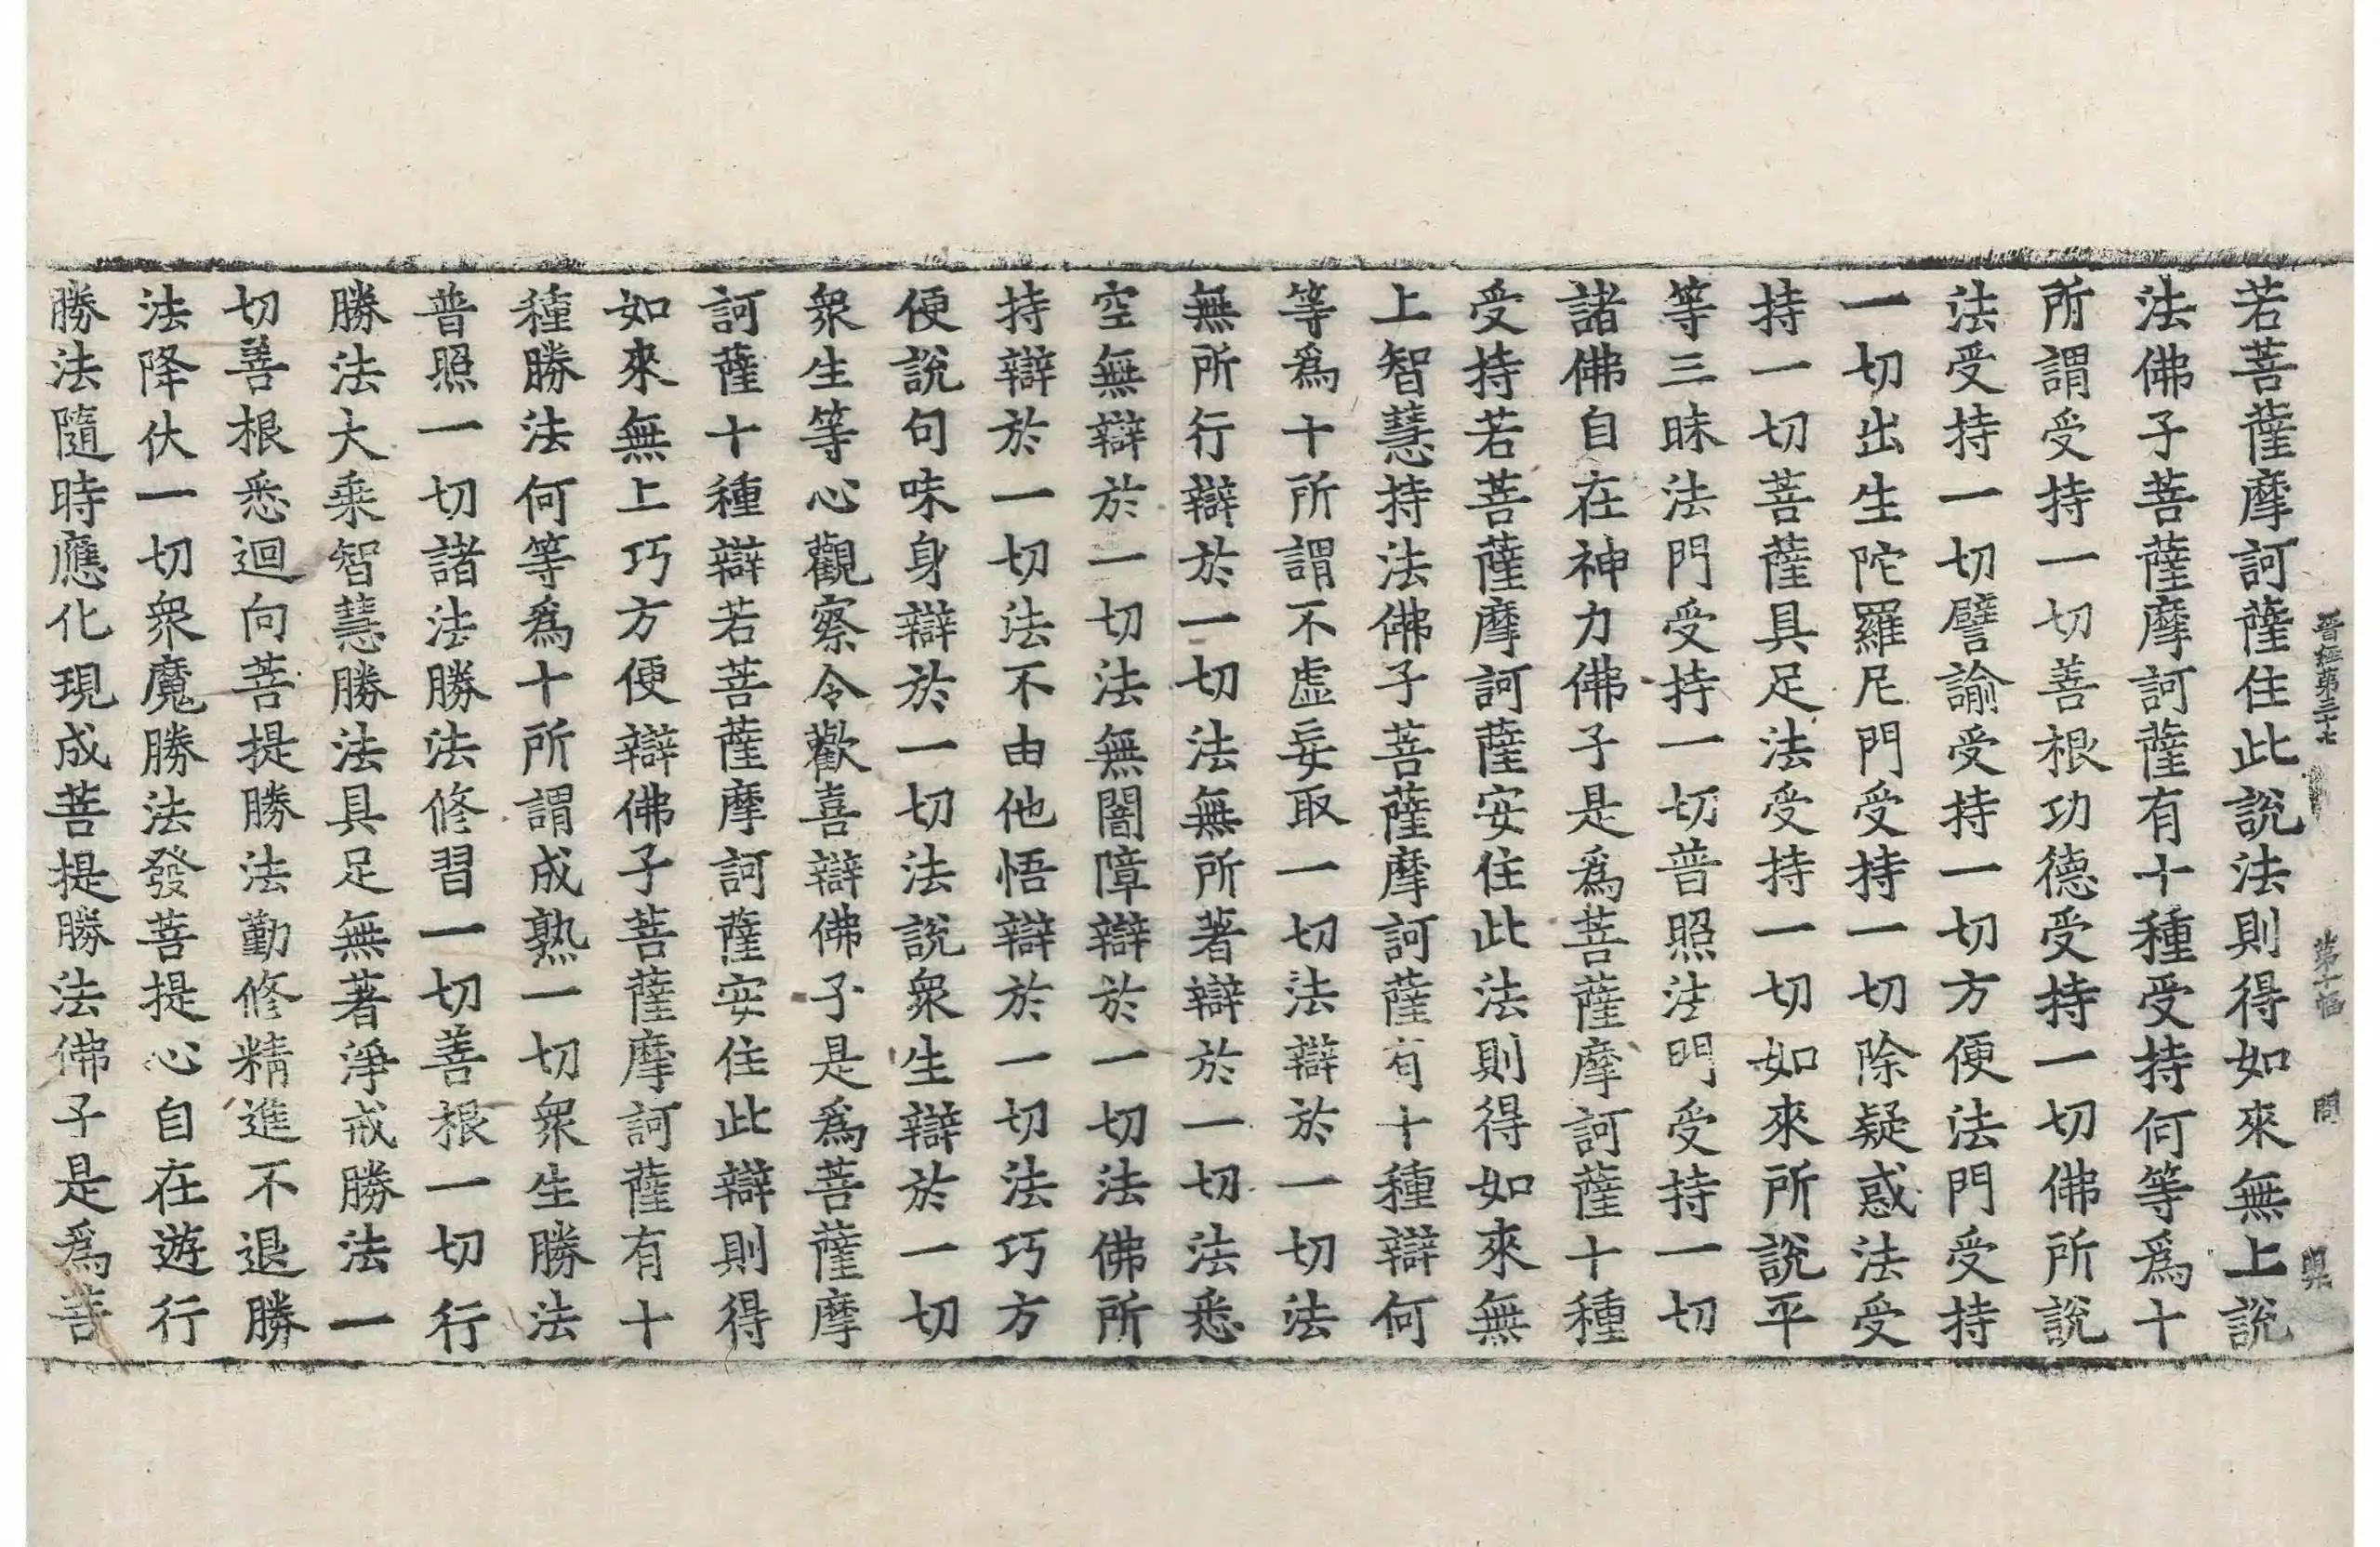 晋経第三十七 第十幅 問 㬎
若菩薩摩訶薩住此說法則得如來無上說
法佛子菩薩摩訶薩有十種受持何等爲十
所謂受持一切善根功德受持一切佛所說
法受持一切譬諭受持一切方便法門受持
一切出生陀羅尼門受持一切除疑惑法受
持一切菩薩具足法受持一切如來所說平
等三昧法門受持一切普照法門受持一切
諸佛自在神力佛子是爲菩薩摩訶薩十種
受持若菩薩摩訶薩安住此法則得如來無
上智慧持法佛子菩薩摩訶薩有十種辯何
等爲十所謂不虛妄取一切法辯於一切法
無所行辯於一切法無所著辯於一切法悉
空無辯於一切法無闇障辯於一切法佛所
持辯於一切法不由他悟辯於一切法巧方
便說句味身辯於一切法說衆生辯於一切
衆生等心觀察令歡喜辯佛子是爲菩薩摩
訶薩十種辯若菩薩摩訶薩安住此辯則得
如來無上巧方便辯佛子菩薩摩訶薩有十
種勝法何等爲十所謂成熟一切衆生勝法
普照一切諸法勝法修習一切善根一切行
勝法大乘智慧勝法具足無著淨戒勝法一
切善根悉迴向菩提勝法勤修精進不退勝
法降伏一切衆魔勝法發菩提心自在遊行
勝法隨時應化現成菩提勝法佛子是爲菩